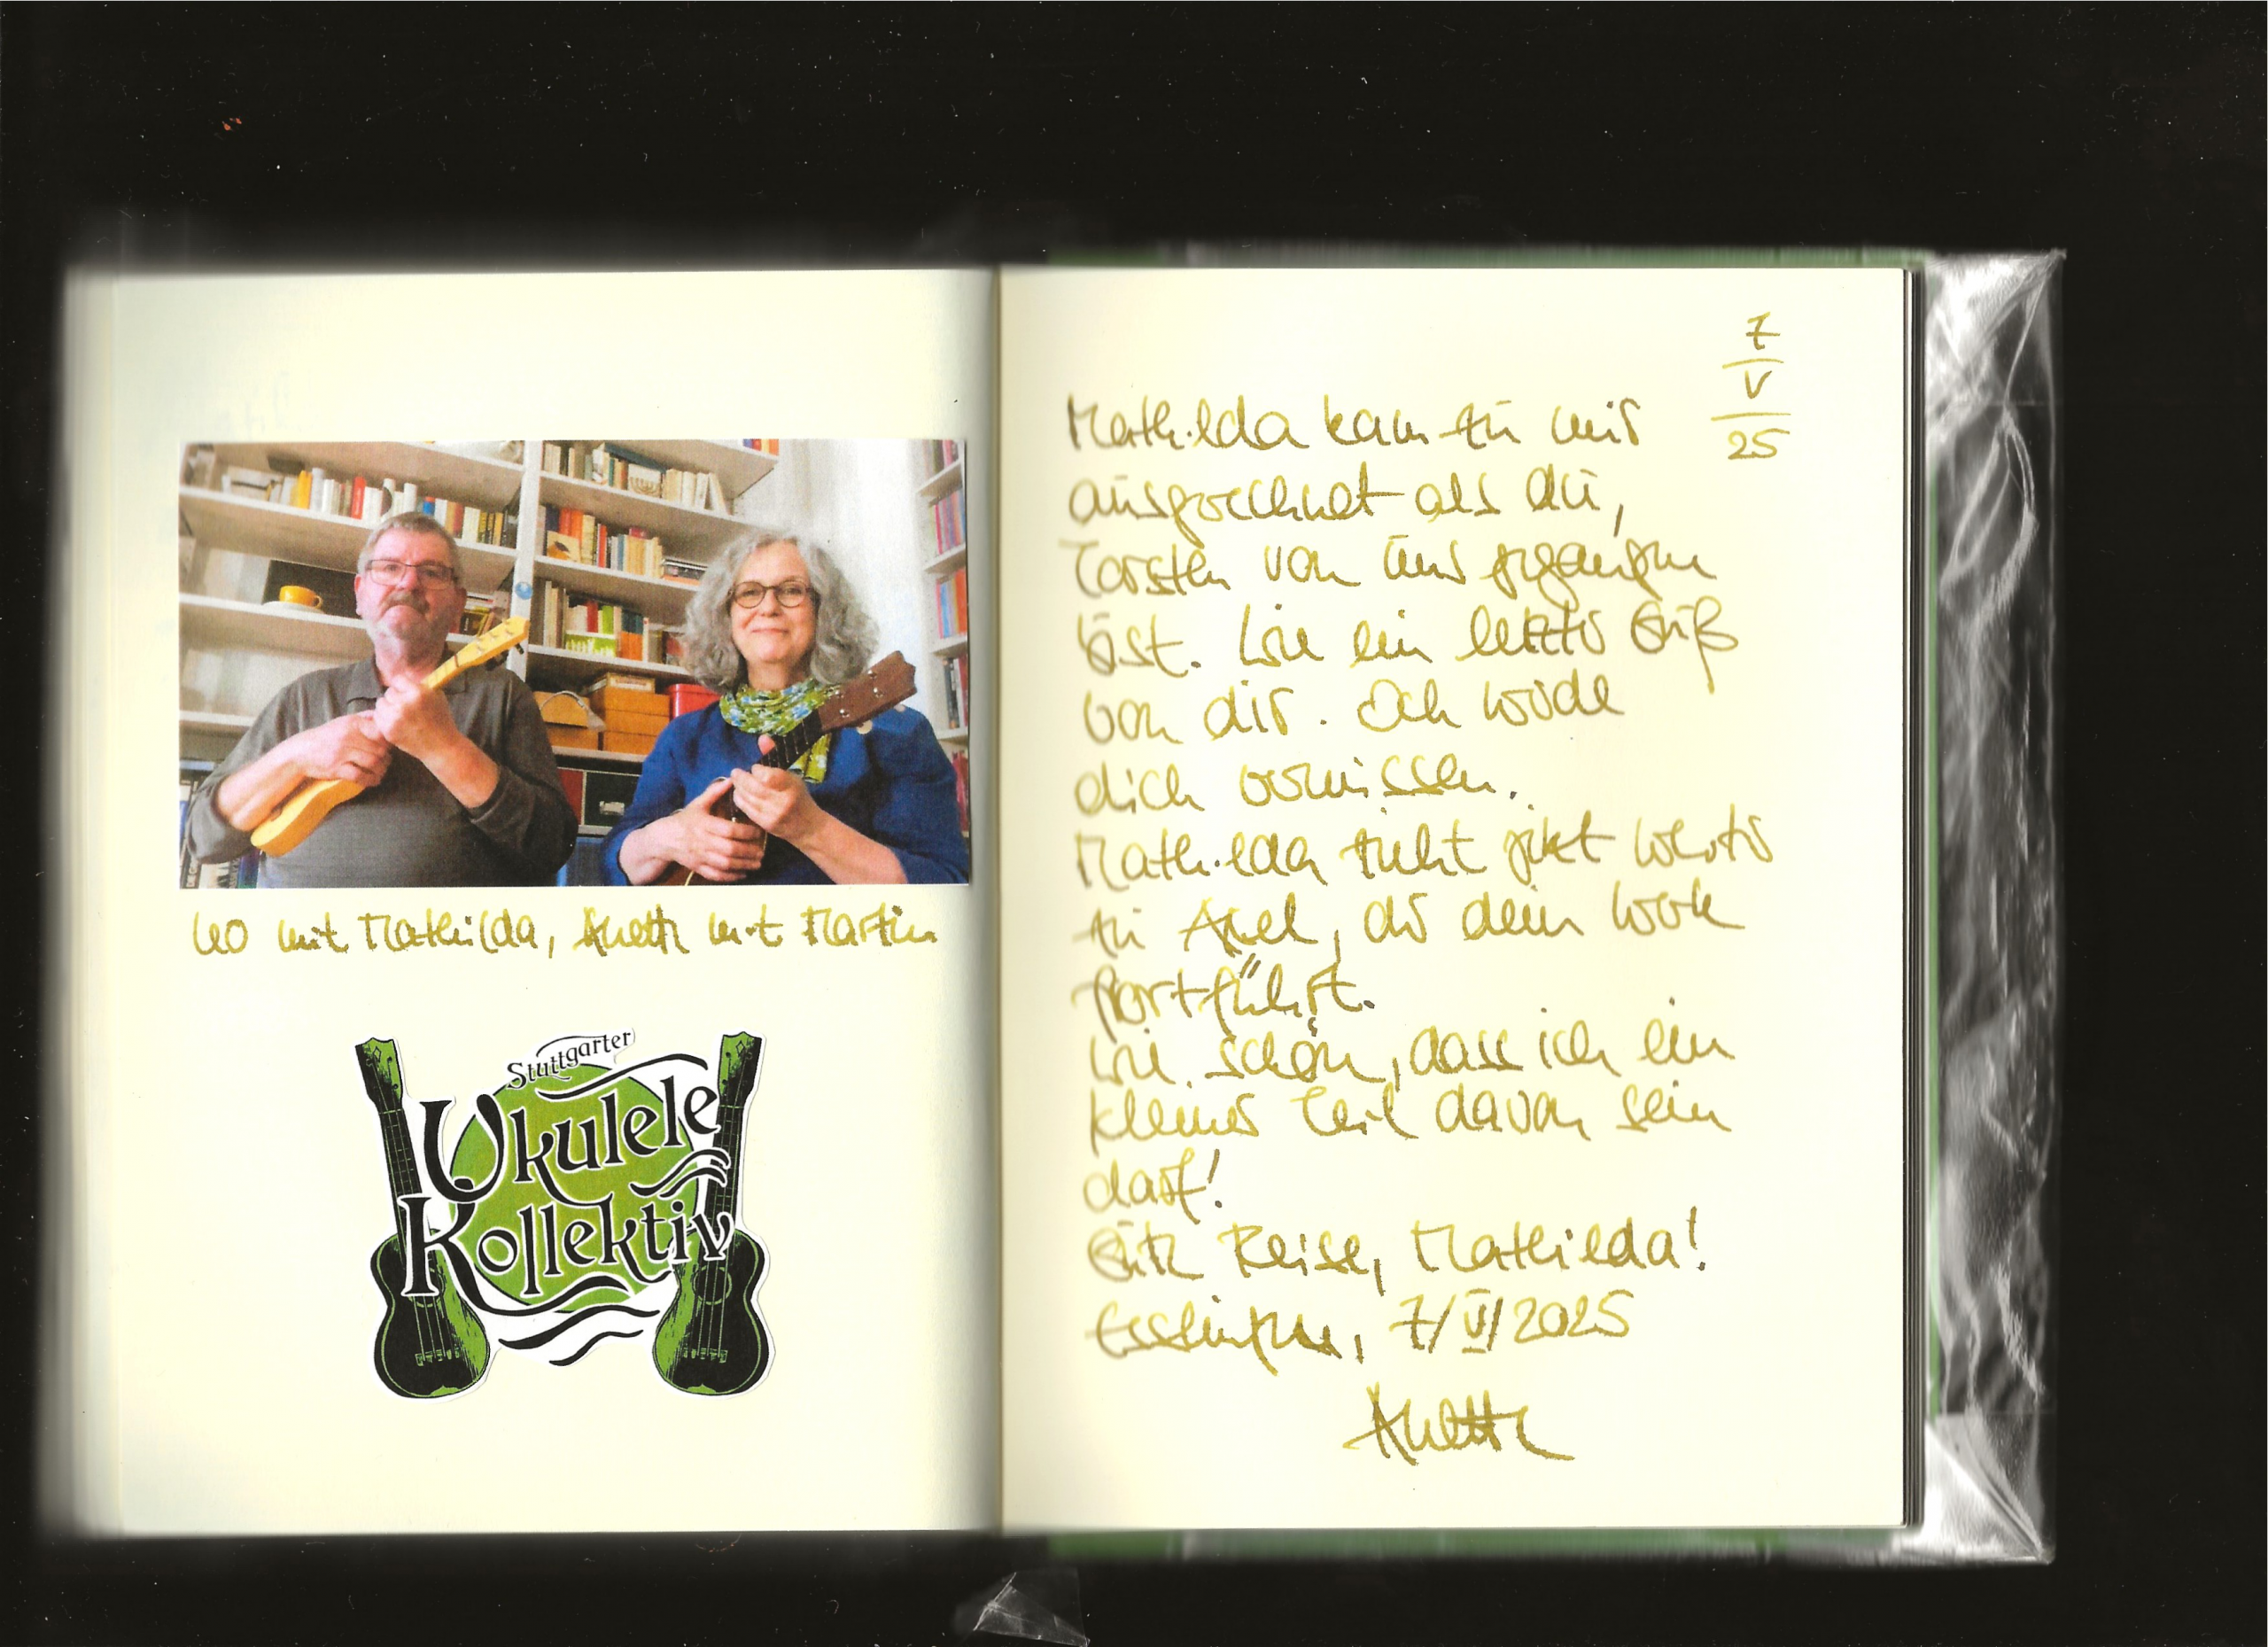 Leo mit Mathilda, Anette mit Martin
Stuttgarter
Ukulele
Kollektiv
7
V
25
Mathilda kam zu mir
ausgerechnet als du,
Torsten von uns gegangen
bist. Wie ein letzter Gruß
von dir. Ich werde
dich vermissen.
Mathilda zieht jetzt weiter
zu Axel, der dein Werk
fortführt.
Wie schön, dass ich ein
kleiner Teil davon sein
darf!
Gute Reise, Mathilda!
Esslingen, 7/V/2025
Anette